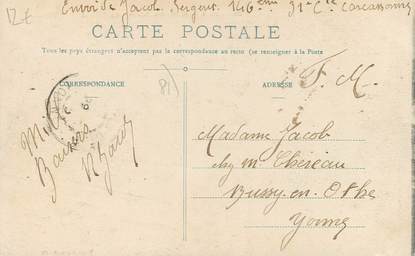 12€
Envoi de Jacob, Sergent. 146ème 31e Cie Carcassonne
CARTE POSTALE
Tous les pays étrangers n'acceptent pas la correspondance au recto (se renseigner à la Poste
CORRESPONDANCE
ADRESSE
F. M.
Mille
Baisers
Madame Jacob
chez Mr Chéreau
Bussy-en-Othe
Yonne